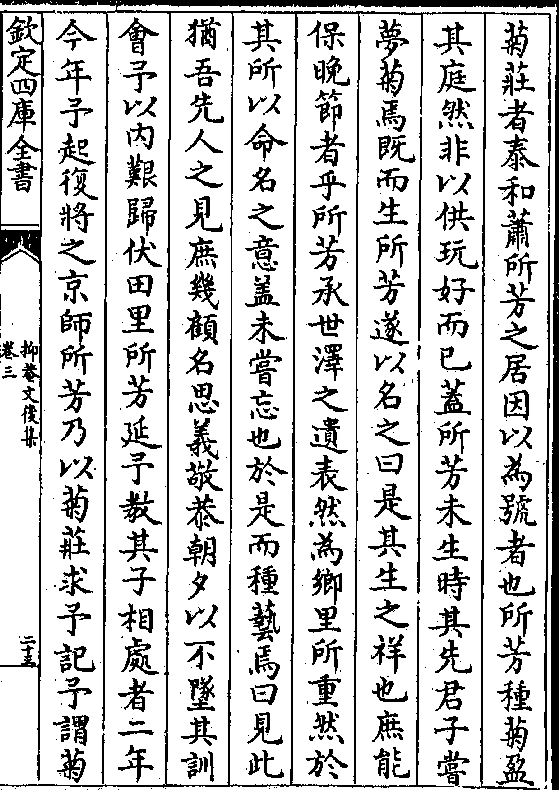 菊莊者泰和蕭所芳之居因以為號者也所芳種菊盈
其庭然非以供玩好而已蓋所芳未生時其先君子嘗
夢菊焉既而生所芳遂以名之曰是其生之祥也庶能
保晚節者乎所芳承世澤之遺表然為鄉里所重然於
其所以命名之意蓋未嘗忘也於是而種藝焉曰見此
猶吾先人之見庶幾顧名思義敬恭朝夕以不墜其訓
會予以内艱歸伏田里所芳延予教其子相處者二年
今年予起復將之京師所芳乃以菊莊求予記予謂菊
欽定四庫全書
抑菴文後集
卷三
二十五